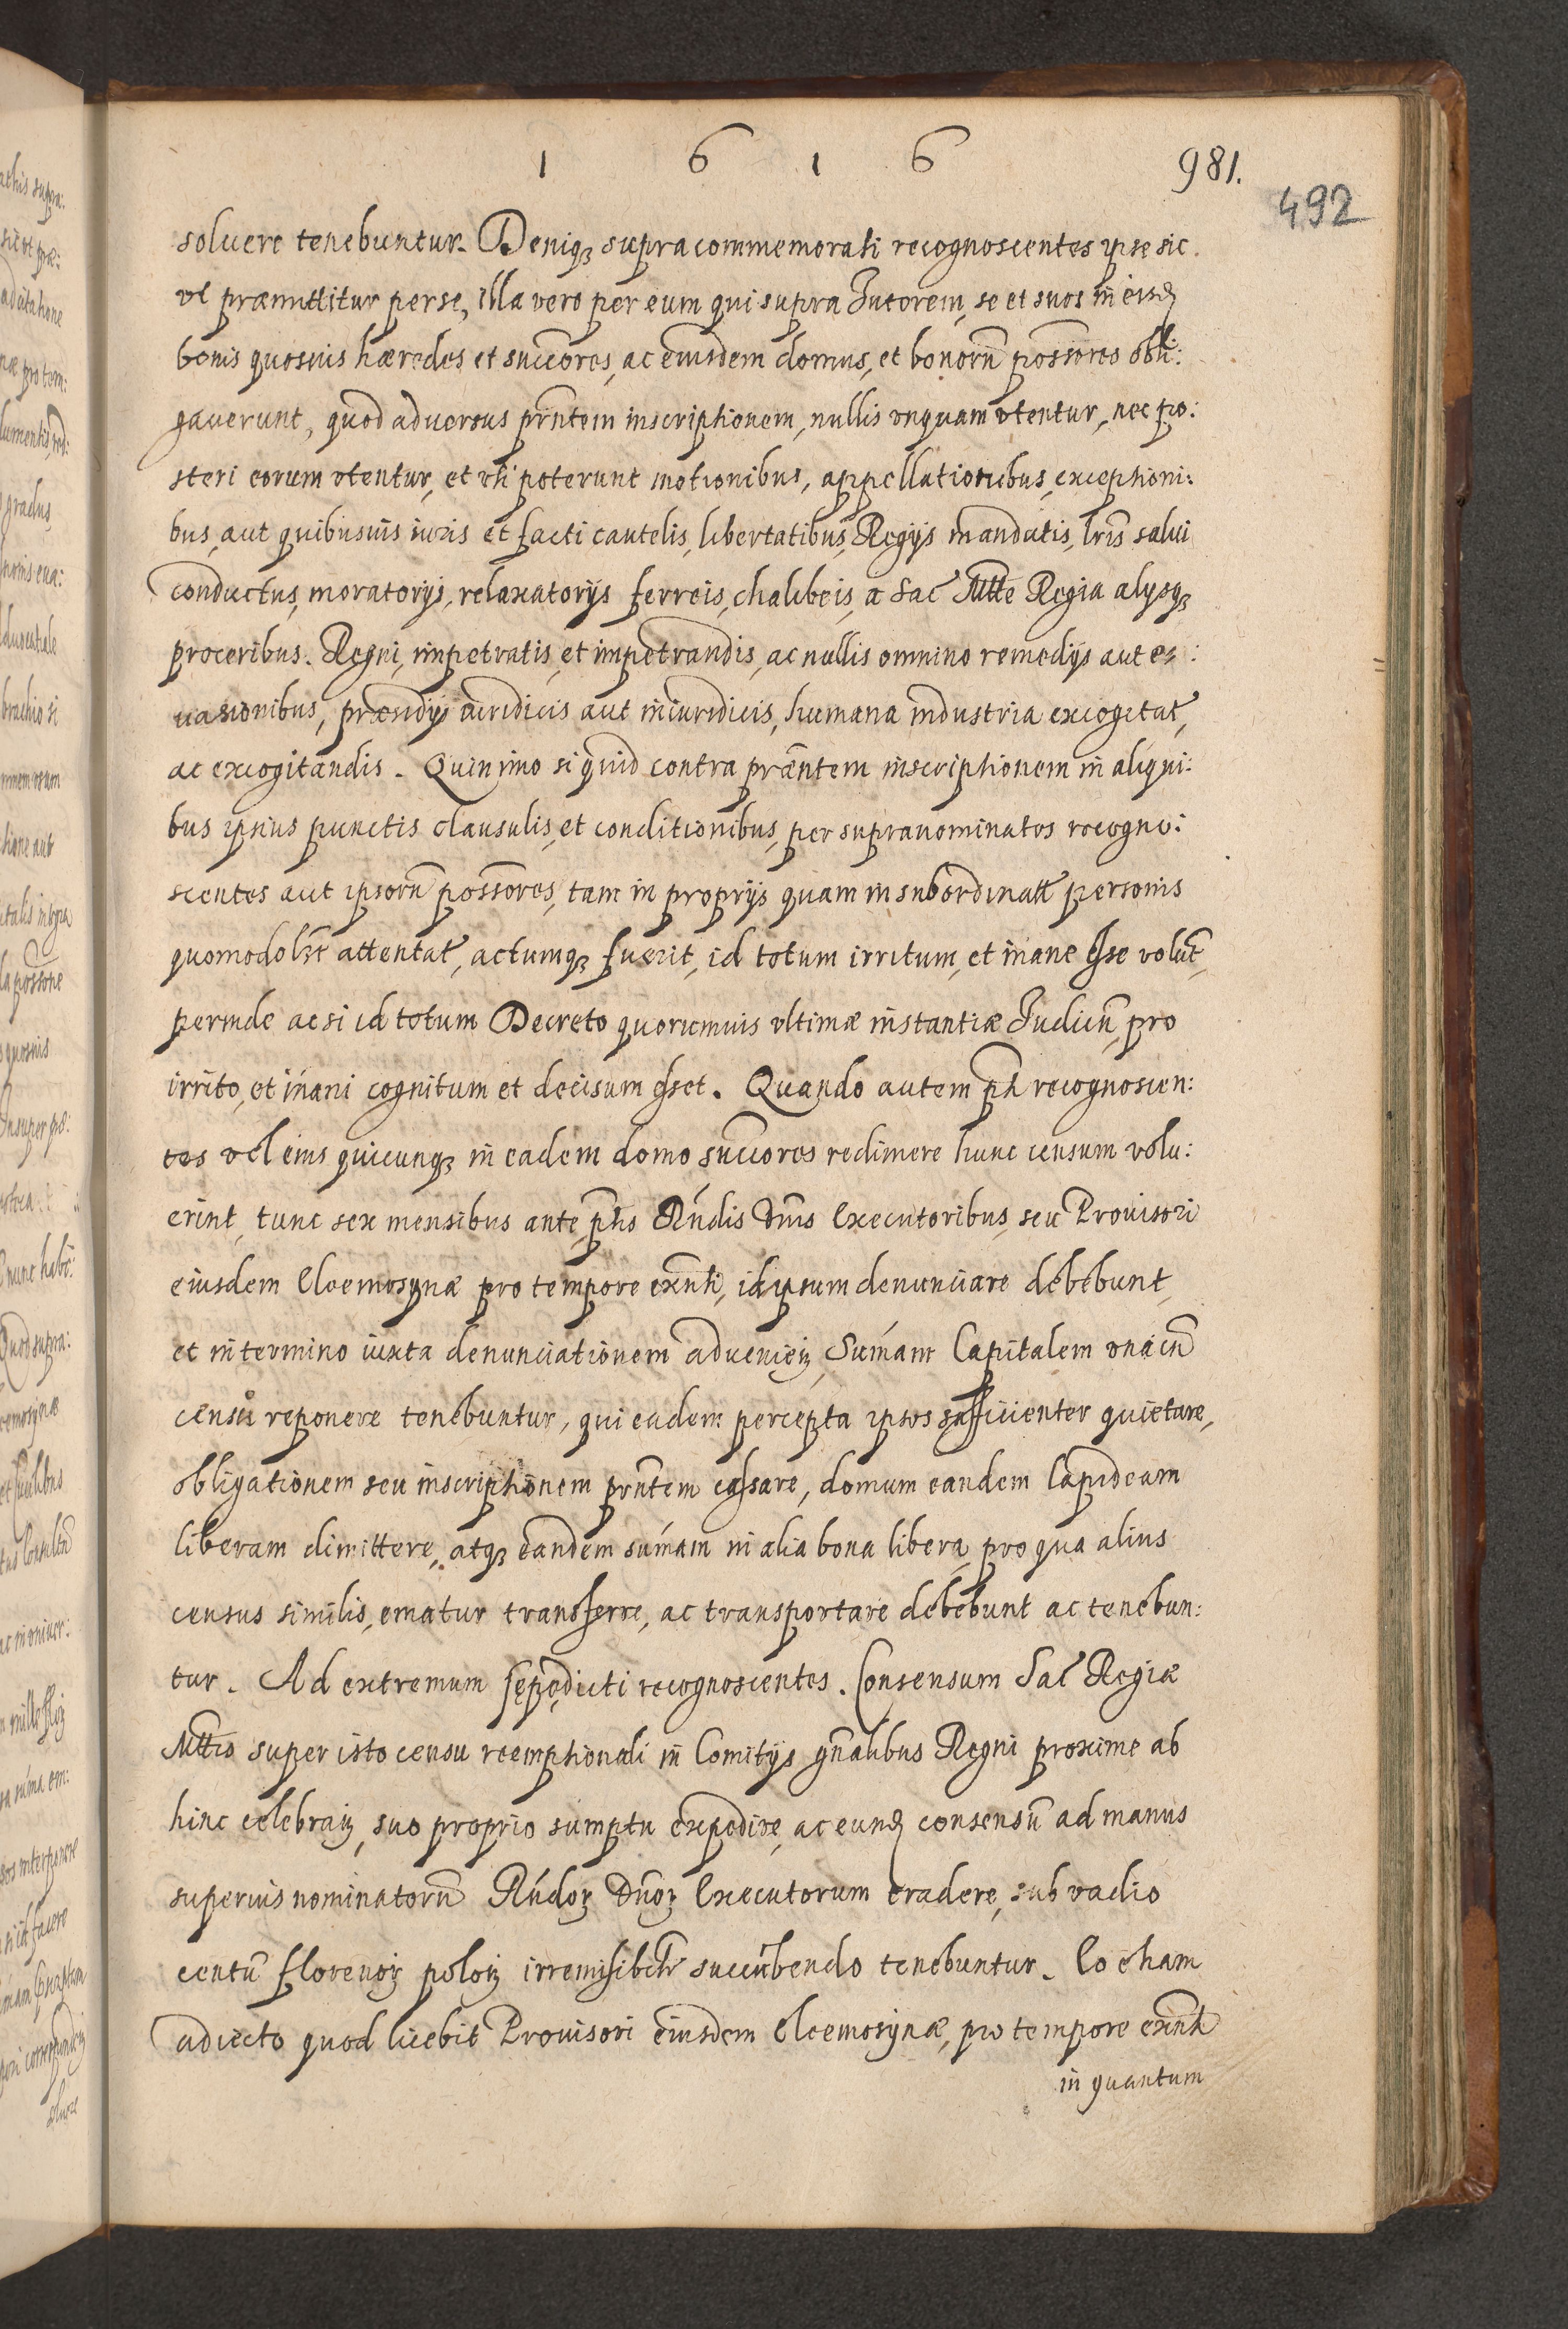 1 6 1 6
981.
492
soluere tenebuntur. Deniqꝫ supra commemorati recognoscentes ipse sic
vt præmittitur per se, illa vero per eum qui supra Tutorem, se et suos in eisdꝫ
bonis quosuis hæredes et succ̃ores, ac eiusdem domus, et bonorũ poss̃ores obli:
gauerunt, quod aduersus pr̃ntem inscriptionem, nullis vnquam vtentur, nec po:
steri eorum vtentur, et vti poterunt motionibus, appellationibus, exceptioni:
bus, aut quibusuis iuris et facti cautelis, libertatibus, Regijs mandatis, lr̃is salui
conductus, moratorijs, relaxatorijs ferreis, chalibeis, a Sac̃ Mtte Regia alijsqꝫ
proceribus. Regni, impetratis, et impetrandis, ac nullis omnino remedijs aut e:
uasionibus, præsidijs iuridicis aut iniuridicis, humana industria excogitat̃,
ac excogitandis. Quinimo si quid contra præ̃ntem inscriptionem in aliqui:
bus ipsius punctis clausulis, et conditionibus, per supranominatos recogno:
scentes aut ipsorũ poss̃ores, tam in proprijs quam in subordinat̃ personis
quomodolꝫt attentat̃, actumqꝫ fuerit, id totum irritum, et inane esse volũt,
perinde ac si id totum Decreto quorumuis vltimæ instantiæ Judicũ, pro
irrito, et inani cognitum et decisum esset. Quando autem pt̃i recognoscen:
tes vel eius quicunqꝫ in eadem domo succ̃ores redimere hunc censum volu:
erint, tunc sex mensibus ante, pt̃is Rńdis Dñis Executoribus, seu Prouisori
eiusdem Eleemosynæ pro tempore exñti, id ipsum denunciare debebunt,
et in termino iuxta denunciationem adueniẽ, Sum̃am Capitalem vnacũ
censů reponere tenebuntur, qui eadem percepta ipsos sufficienter quietare,
obligationem seu inscriptionem pr̃ntem cassare, domum eandem lapideam
liberam dimittere, atqꝫ eandem sum̃am in alia bona libera, pro qua alius
census similis, ematur transferre, ac transportare debebunt ac tenebun:
tur. Ad extremum sępędicti recognoscentes. Consensum Sac̃ Regiæ
Mttis super isto censu reemptionali in Comitijs gñalibus Regni proxime ab
hinc celebraꝫ, suo proprio sumptu expedire, ac eundꝫ consensũ ad manus
superius nominatorũ Rńdoꝝ Dñoꝝ Executorum tradere, sub vadio
centũ florenoꝝ poloꝝ irremisibl̃r succũbendo tenebuntur. Eo etiam
adiecto quod licebit Prouisori eiusdem Eleemosynæ, pro tempore exñti
in quantum